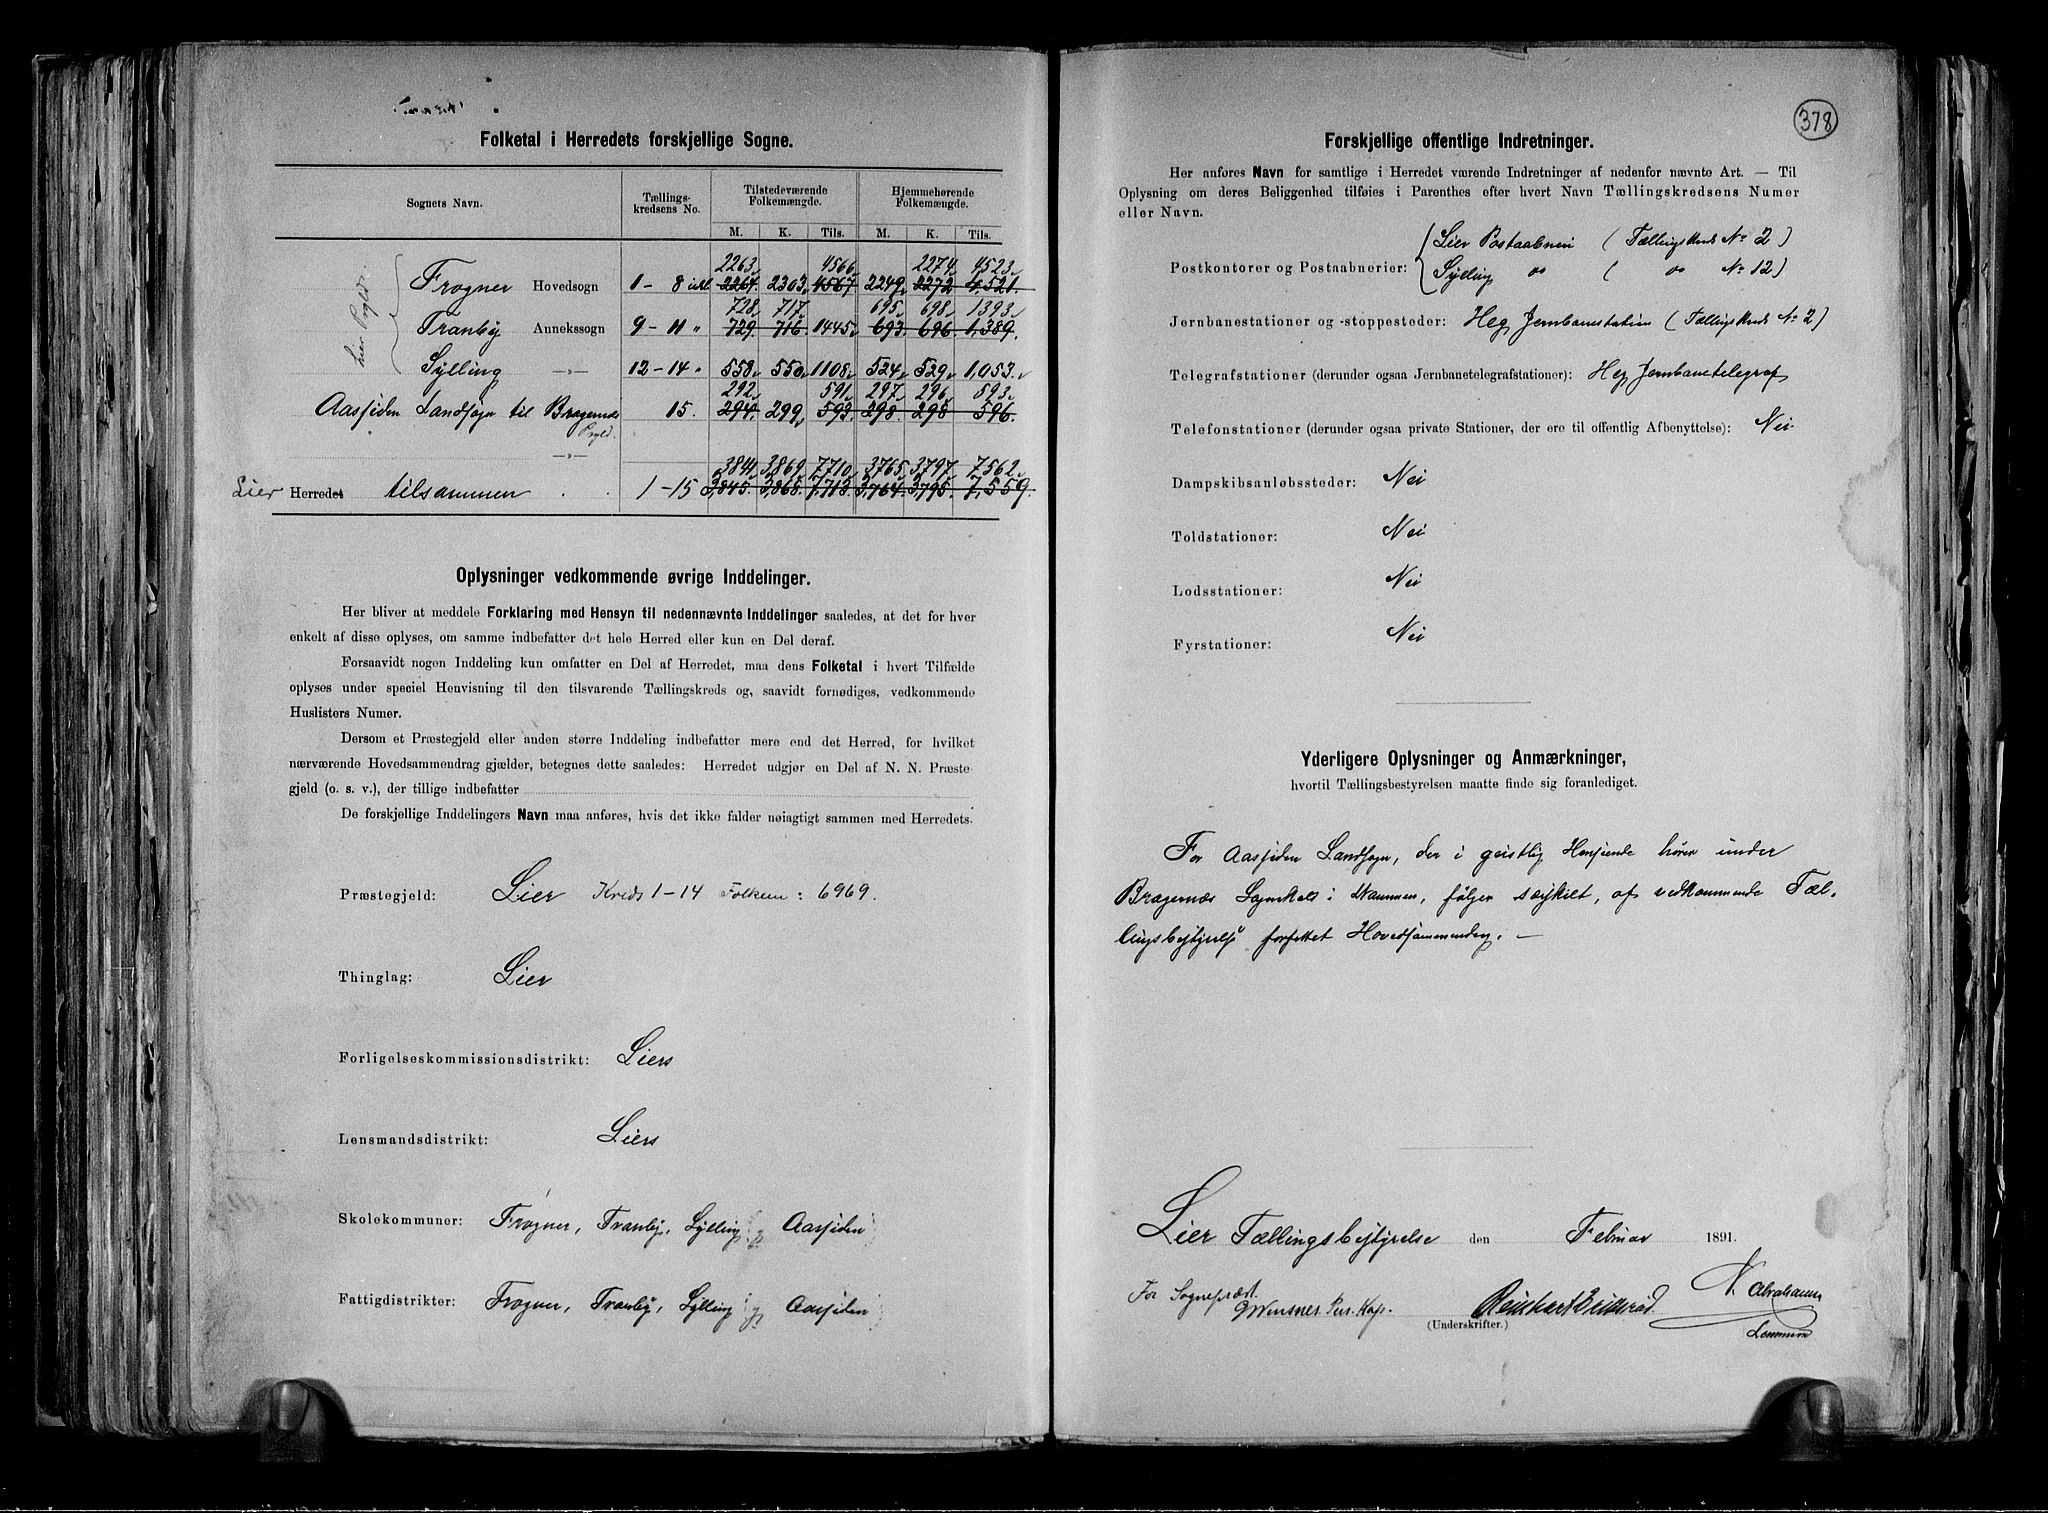 Folketal i Herredets forskjellige Sogne.
Sognets Navn. Tællings-kredsens No. Tilstedeværende Folkemængde. Hjemmehørende Folkemængde.
M. K. Tils. M. K. Tils.
2263 4566 2274 4523
Lier Prgld. Frogner Hovedsogn 1-8 inkl 2264 2303 4567 2249 2272 4,521
728 717 695 698 1393
Tranby Annekssogn 9-11 " 729 716 1445 693 696 1,389
Sylling —„— 12-14 " 558 550 1108 524 529 1,053
292 591 297 296 593
Aassiden Landsogn til Bragernæs Prgld. 15. 294 299 593 298 298 596
—„—
3841 3869 7710 3765 3797 7,562
Lier Herredet tilsammen 1-15 3,845 3,868 7,713 3,764 3,795 7,559
Oplysninger vedkommende øvrige Inddelinger.
Her bliver at meddele Forklaring med Hensyn til nedennævnte Inddelinger saaledes, at det for hver
enkelt af disse oplyses, om samme indbefatter det hele Herred eller kun en Del deraf.
Forsaavidt nogen Inddeling kun omfatter en Del af Herredet, maa dens Folketal i hvert Tilfælde
oplyses under speciel Henvisning til den tilsvarende Tællingskreds og, saavidt fornødiges, vedkommende
Huslisters Numer.
Dersom et Præstegjeld eller anden større Inddeling indbefatter mere end det Herred, for hvilket
nærværende Hovedsammendrag gjælder, betegnes dette saaledes: Herredet udgjør en Del af N. N. Præste-
gjeld (o. s. v.), der tillige indbefatter
De forskjellige Inddelingers Navn maa anføres, hvis det ikke falder nøiagtigt sammen med Herredets.
Præstegjeld: Lier Kreds 1-14 Folkem: 6969.
Thinglag: Lier
Forligelseskommissionsdistrikt: Liers
Lensmandsdistrikt: Liers
Skolekommuner: Frogner, Tranby, Sylling og Aassiden
Fattigdistrikter: Frogner, Tranby, Sylling og Aassiden
378
Forskjellige offentlige Indretninger.
Her anføres Navn for samtlige i Herredet værende Indretninger af nedenfor nævnte Art. — Til
Oplysning om deres Beliggenhed tilføies i Parenthes efter hvert Navn Tællingskredsens Numer
eller Navn.
Lier Postaabneri (Tællingskreds No 2)
Postkontorer og Postaabnerier: Sylling do ( do No 12)
Jernbanestationer og -stoppesteder: Heg Jernbanestation (Tællingskreds No 2)
Telegrafstationer (derunder ogsaa Jernbanetelegrafstationer): Heg Jernbanetelegraf
Telefonstationer (derunder ogsaa private Stationer, der ere til offentlig Afbenyttelse): Nei
Dampskibsanløbssteder: Nei
Toldstationer: Nei
Lodsstationer: Nei
Fyrstationer: Nei
Yderligere Oplysninger og Anmærkninger,
hvortil Tællingsbestyrelsen maatte finde sig foranlediget.
For Aassiden Landsogn, der i geistlig Henseende hører under
Bragernæs Sognekald i Drammen, følger særskilt, af vedkommende Tæl-
lingsbestyrelse forfattet Hovedsammendrag. —
Lier Tællingsbestyrelse den Februar 1891.
For Sognepræst
(Underskrifter.)